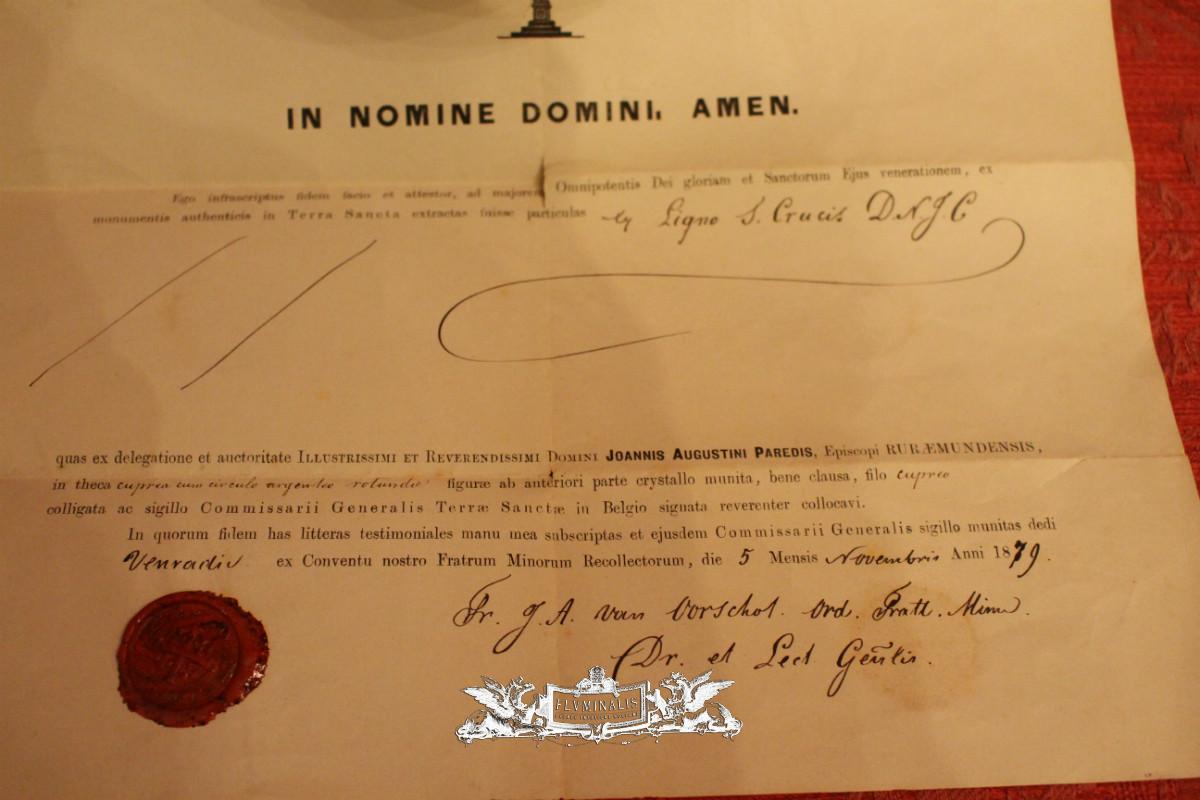 IN NOMINE DOMINI, AMEN.
Ego infrascriptus fidem facio et attestor, ad majorem Omnipotentis Dei gloriam et Sanctorum Ejus venerationem, ex
monumentis authenticis in Terra Sancta extractas fuisse particulas Ligno S. Crucis D N J C
quas ex delegatione et auctoritate ILLUSTRISSIMI ET REVERENDISSIMI DOMINI JOANNIS AUGUSTINI PAREDIS, Episcopi RURÆMUNDENSIS,
in theca cuprea cum circulo argenteo rotundæ figuræ ab anteriori parte crystallo munita, bene clausa, filo cupreo
colligata ac sigillo Commissarii Generalis Terræ Sanctæ in Belgio signata reverenter collocavi.
In quorum fidem has litteras testimoniales manu mea subscriptas et ejusdem Commissarii Generalis sigillo munitas dedi
Venradii ex Conventu nostro Fratrum Minorum Recollectorum, die 5 Mensis Novembris Anni 1879.
Fr. J. A. van Oorschot. Ord. Fratr. Min.
Dr. et Lect
FLVMINALIS